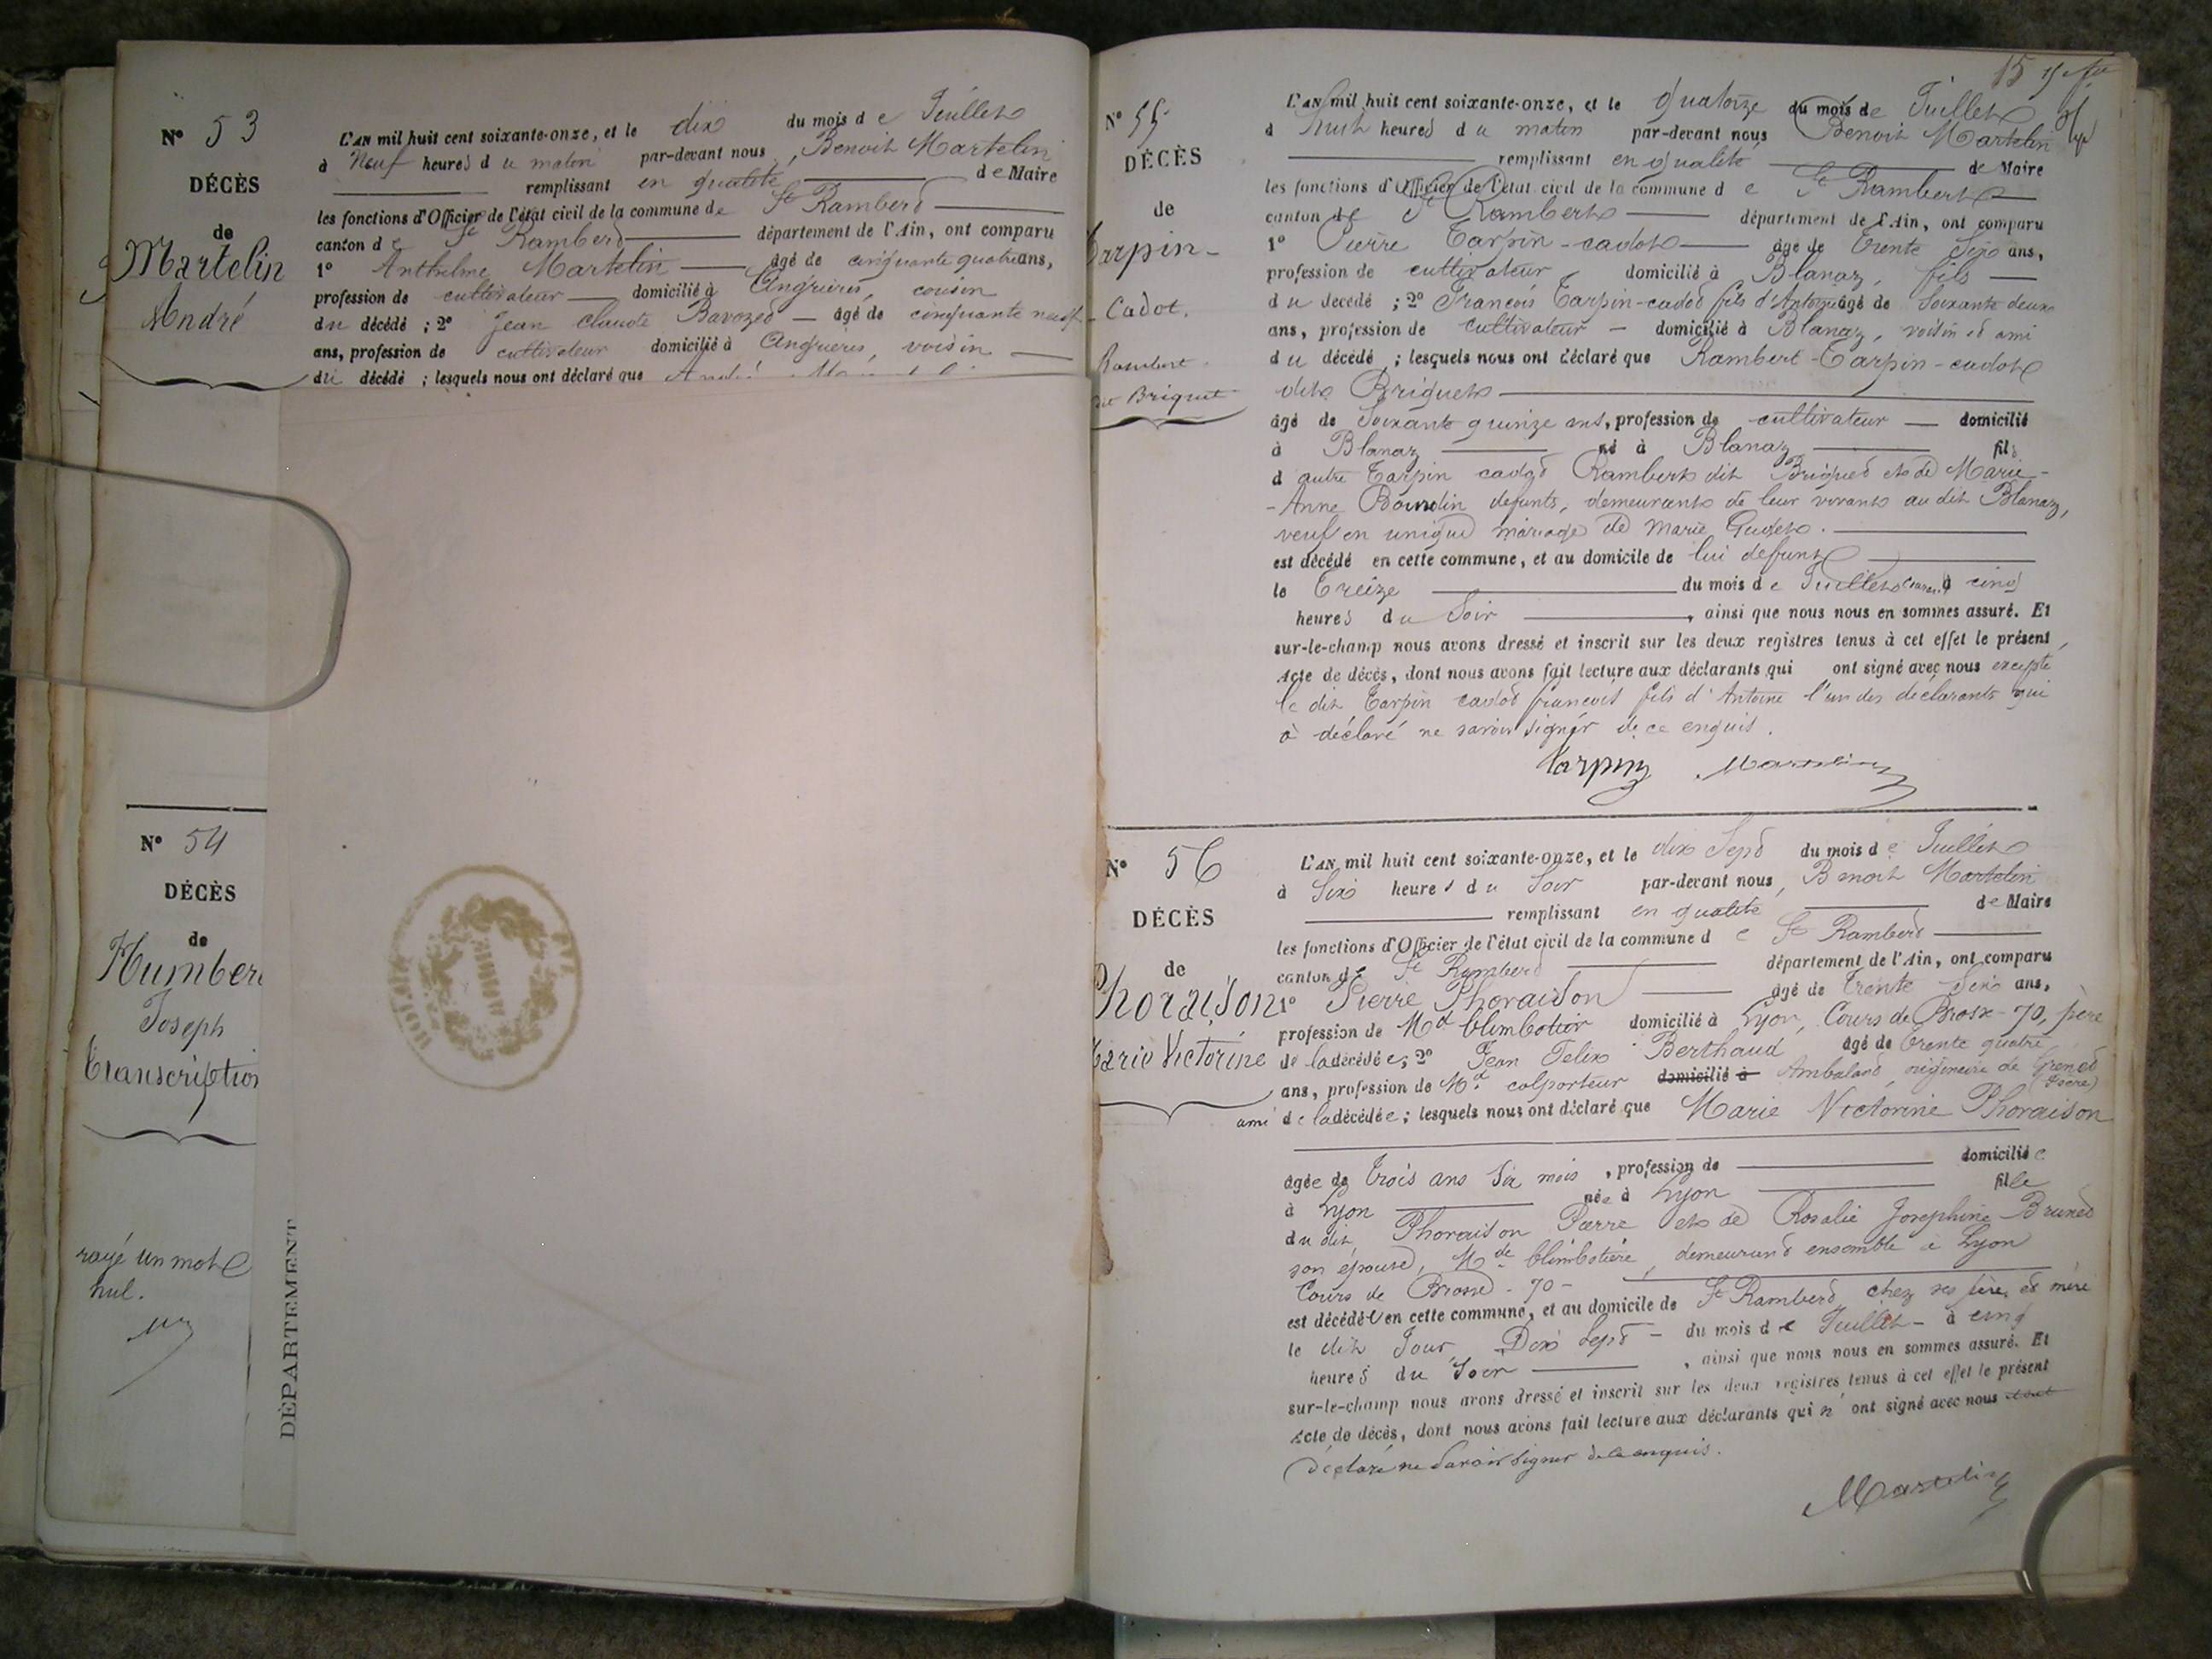 N° 53
DÉCÈS
de
Martelin
André
L'AN mil huit cent soixante-onze, et le dix du mois de Juillet
à Neuf heures du matin par-devant nous, Benoit Martelin
remplissant en qualité de Maire
les fonctions d'Officier de l'état civil de la commune de St Rambert
canton de St Rambert département de l'Ain, ont comparu
1° Anthelme Martelin âgé de cinquante quatre ans,
profession de cultivateur domicilié à Angrieres, cousin
du décédé ; 2° Jean claude Bavozet âgé de cinquante neuf
ans, profession de cultivateur domicilié à Angrieres, voisin
du décédé ; lesquels nous ont déclaré que André
N° 54
DÉCÈS
de
Humber
Joseph
Transcription
rayé un mot
nul.
DÉPARTEMENT
15
N° 55
DÉCÈS
de
Tarpin-
Cadot.
Rambert
dit Briquet
L'AN mil huit cent soixante-onze, et le quatorze du mois de Juillet
à huit heures du matin par-devant nous Benoit Martelin
remplissant en qualité de Maire
les fonctions d'Officier de l'état civil de la commune de St Rambert
canton de St Rambert département de l'Ain, ont comparu
1° Pierre Tarpin-cadot âgé de trente Six ans,
profession de cultivateur domicilié à Blanaz, fils
du décédé ; 2° François Tarpin-cadot fils d'Antoine âgé de Soixante deux
ans, profession de cultivateur domicilié à Blanaz, voisin et ami
du décédé ; lesquels nous ont déclaré que Rambert-Tarpin-cadot
dit Briquet
âgé de Soixante quinze ans, profession de cultivateur domicilié
à Blanaz né à Blanaz fils
d autre Tarpin cadot Rambert dit Briquet et de Marie-
-Anne Bourdin defunts, demeurants de leur vivant au dit Blanaz,
veuf en unique mariage de Marie Guget.
est décédé en cette commune, et au domicile de lui defunt
le Treize du mois de Juillet courant à cinq
heures du Soir, ainsi que nous nous en sommes assuré. Et
sur-le-champ nous avons dressé et inscrit sur les deux registres tenus à cet effet le présent
Acte de décès, dont nous avons fait lecture aux déclarants qui ont signé avec nous excepté
le dit Tarpin cadot francois fils d'Antoine l'un des declarants qui
à déclaré ne savoir signér de ce enquis.
Tarpin Martelin
N° 56
DÉCÈS
de
Phoraison
Marie Victorine
L'AN mil huit cent soixante-onze, et le dix Sept du mois de Juillet
à Six heures du Soir par-devant nous, Benoit Martelin
remplissant en qualité de Maire
les fonctions d'Officier de l'état civil de la commune de St Rambert
canton de St Rambert département de l'Ain, ont comparu
1° Pierre Phoraison âgé de trente Six ans,
profession de Md blimbotier domicilié à Lyon, Cours de Brosse-70, père
de la décédée; 2° Jean Felix Berthaud âgé de trente quatre
ans, profession de Md colporteur domicilié à Ambulant, originaire de (Isère)
ami de la décédée; lesquels nous ont déclaré que Marie Victorine Phoraison
âgée de trois ans Six mois, profession de domiciliée
à Lyon née à Lyon fille
du dit Phoraison Pierre et de Rosalie Josephine Brunet
son épouse, Mde blimbotière, demeurant ensemble à Lyon
Cours de Brosse-70-
est décédée en cette commune, et au domicile de St Rambert chez ses père et mère
le dit Jour Dix Sept du mois de Juillet - à cinq
heures du Soir, ainsi que nous nous en sommes assuré. Et
sur-le-champ nous avons dressé et inscrit sur les deux registres tenus à cet effet le présent
Acte de décès, dont nous avons fait lecture aux déclarants qui n'ont signé avec nous
déclaré ne Savoir Signer de ce enquis.
Martelin